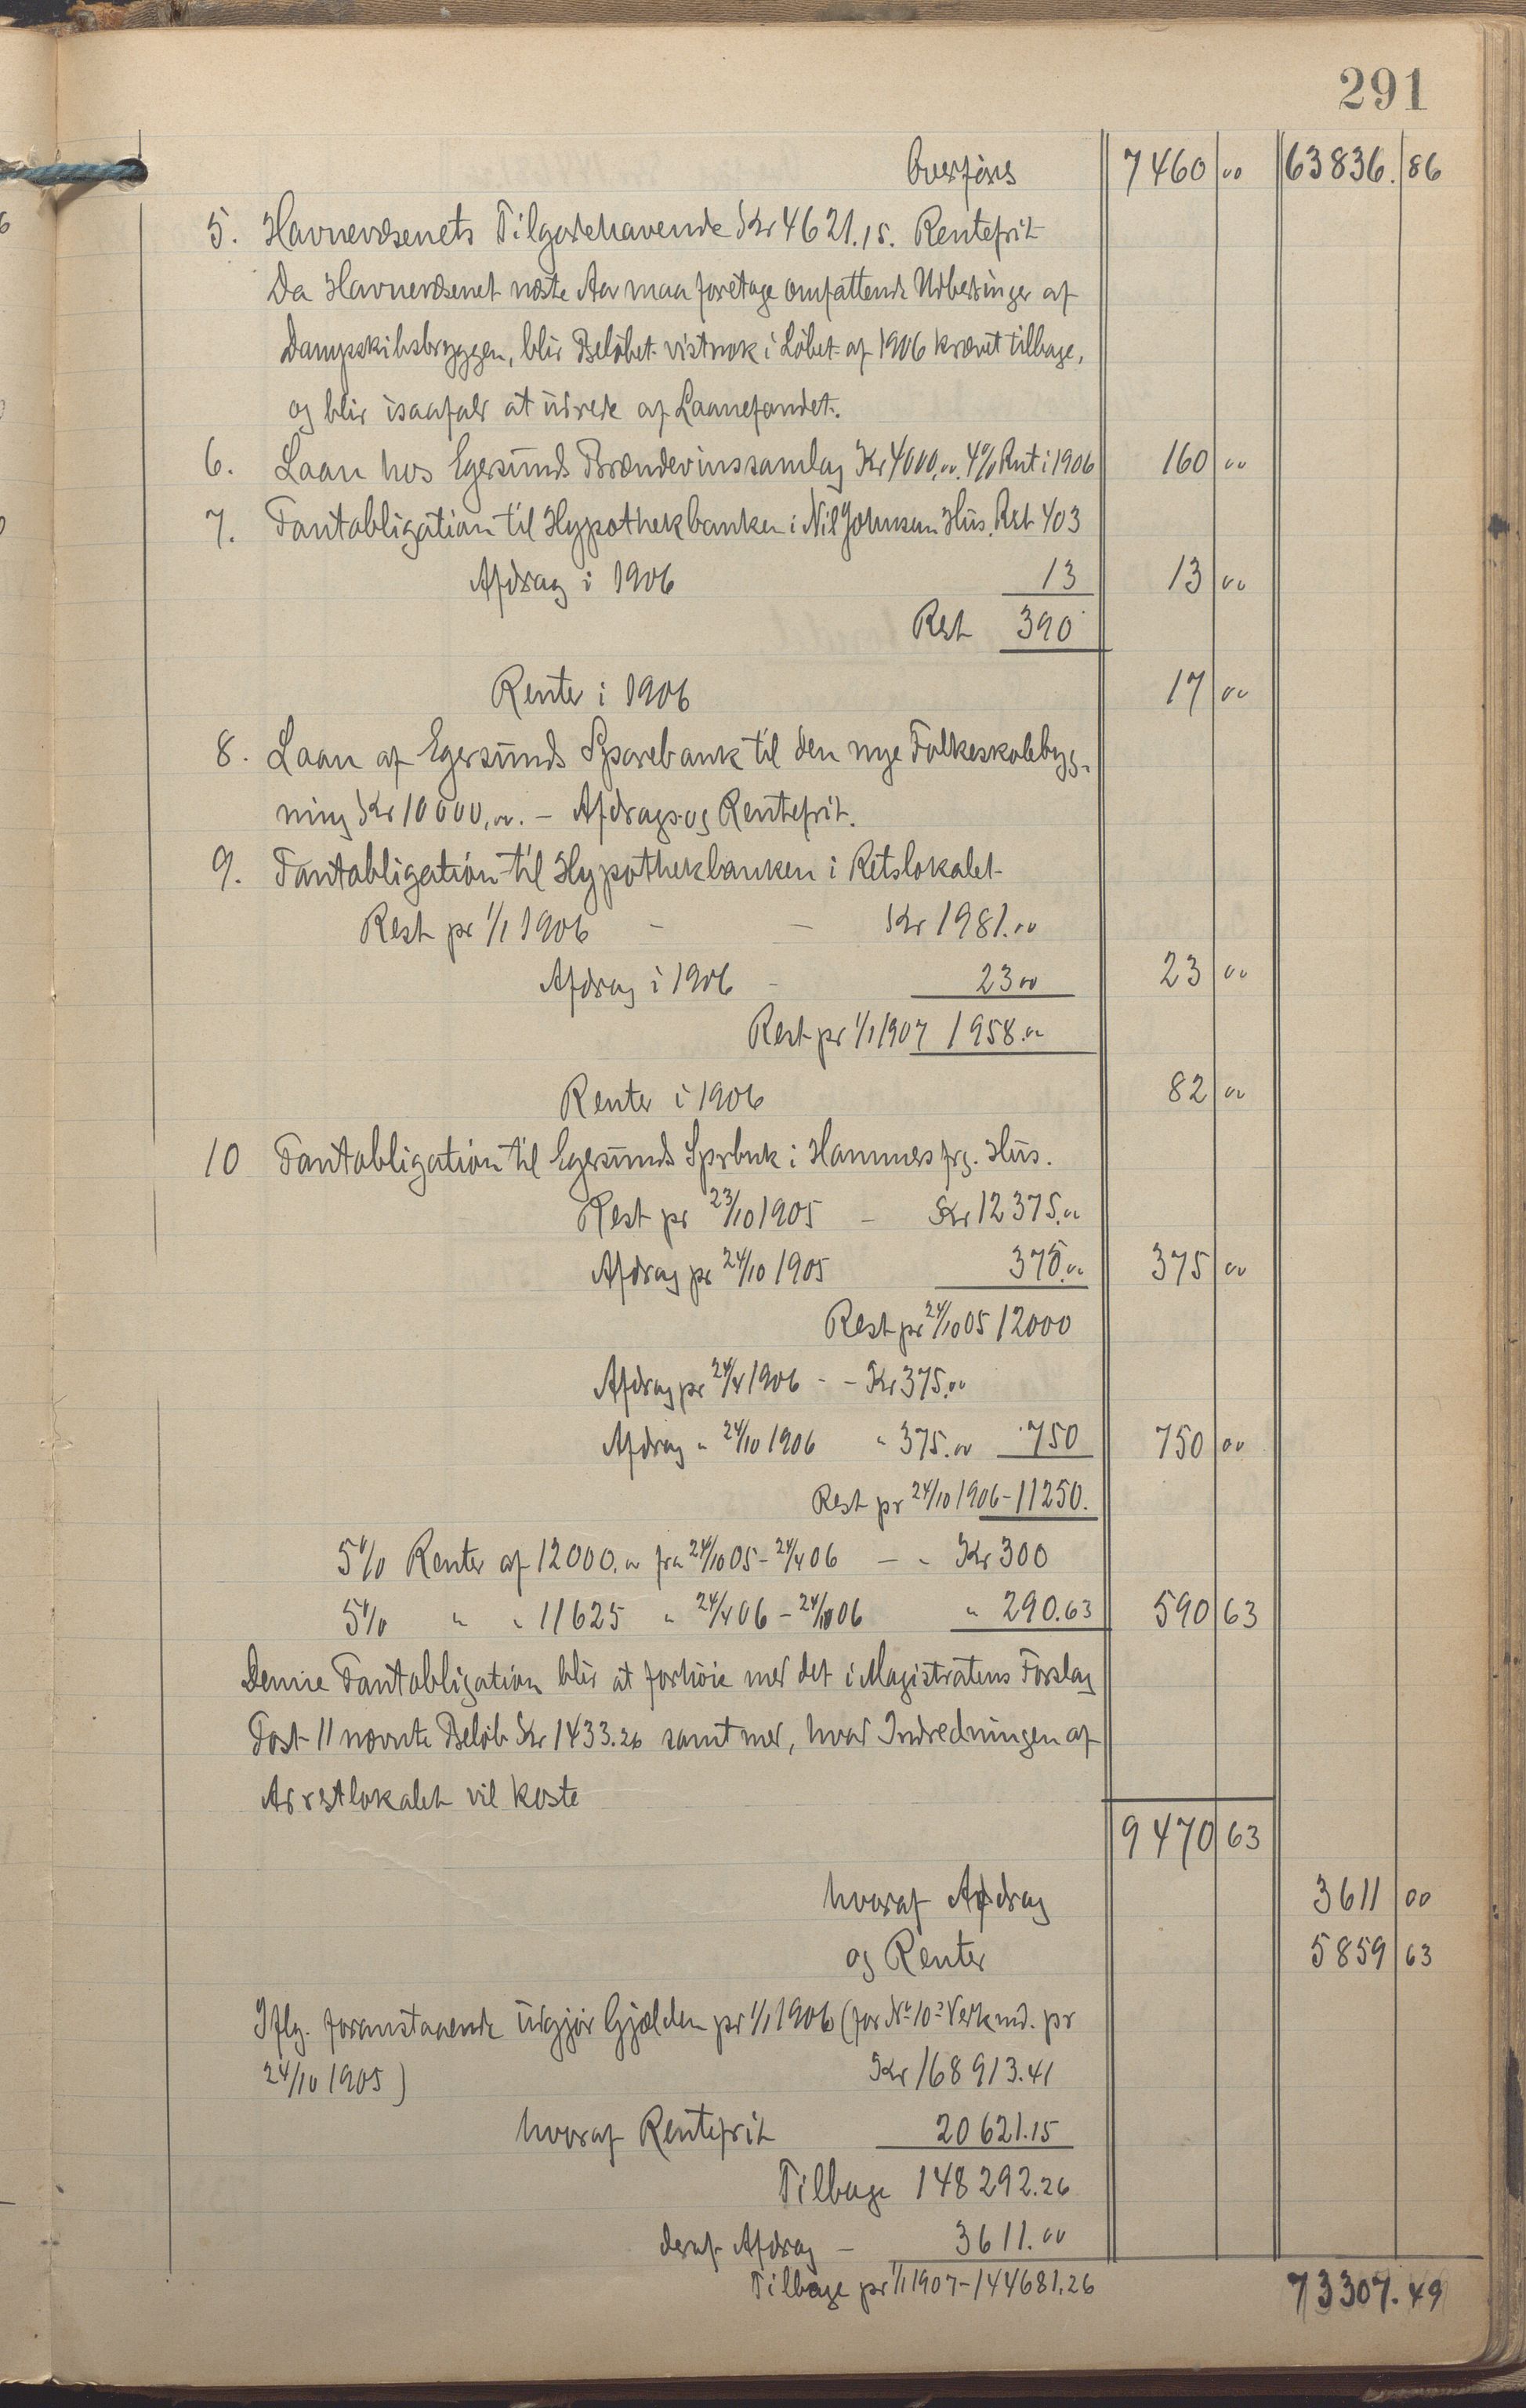 291
Overføres 7460 00 63836. 86
5. Havnevæsenets Tilgodehavende Kr 4621.15. Rentefrit
Da Havnevæsenet næste Aar maa foretage omfattende Udbedringer af
Dampskibsbryggen, blir Beløbet vistnok i Løbet af 1906 krævet tilbage,
og blir isaafald at udrede af Laanefondet.
6. Laan hos Egersunds Brændevinssamlag Kr 4000,00. 4% Rent i 1906 160 00
7. Pantobligation til Hypothekbanken i Nil Johnsens Hus. Rest 403
Afdrag i 1906 13 13 00
Rest 390
Renter i 1906 17 00
8. Laan af Egersunds Sparebank til den nye Folkeskolebyg-
ning Kr 10000,00. - Afdrags- og Rentefrit.
9. Pantobligation til Hypothekbanken i Retslokalet
Rest pr 1/1 1906 - - Kr 1981.00
Afdrag i 1906 - 23 00 23 00
Rest pr 1/1 1907 1958.00
Renter i 1906 82 00
10 Pantobligation til Egersunds Sprbnk i Hammers frg. Hus.
Rest pr 23/10 1905 - Kr 12375.00
Afdrag pr 24/10 1905 375.00 375 00
Rest pr 24/10 05 12000
Afdrag pr 24/4 1906 - - Kr 375.00
Afdrag " 24/10 1906 " 375.00 750 750 00
Rest pr 24/10 1906 - 11250.
5% Renter af 12000.00 fra 24/10 05 - 24/4 06 - " Kr 300
5% " " 11625 " 24/4 06 - 24/10 06 " 290.63 590 63
Denne Pantobligation blir at forhøie med det i Magistratens Forslag
Post 11 nævnte Beløb Kr 1433.26 samt med, hvad Indredningen af
Arrestlokalet vil koste
9470 63
hvoraf Afdrag 3611 00
og Renter 5859 63
Iflg. foranstaaende udgjør Gjælden pr 1/1 1906 (for No 10's Vedkmd. pr
24/10 1905) Kr 168913.41
hvoraf Rentefrit 20621.15
Tilbage 148292.26
deraf Afdrag - 3611.00
Tilbage pr 1/1 1907 - 144681.26 73307.49